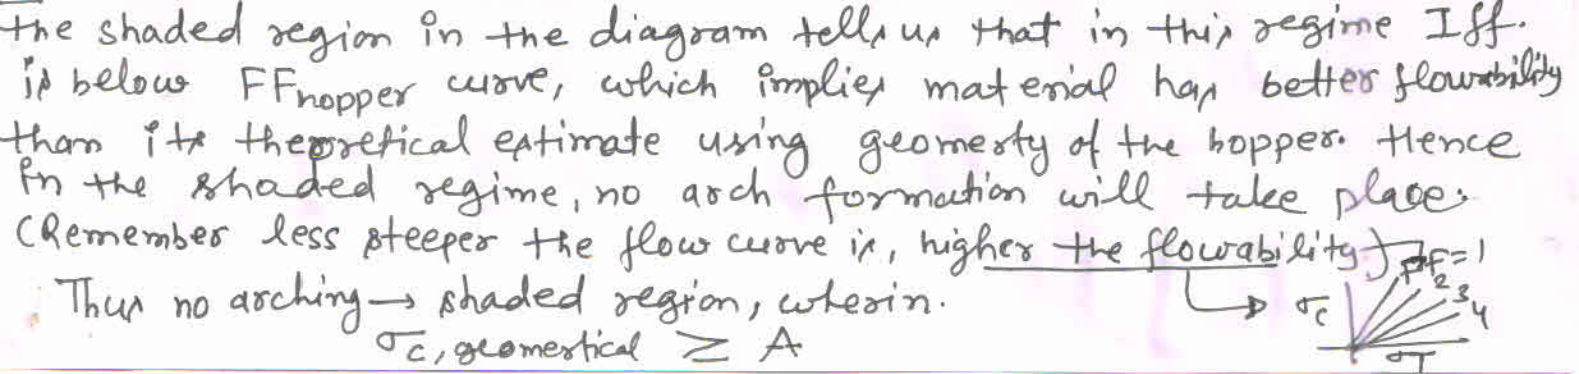 the shaded region in the diagram tells us that in this regime Iff.
is below FFhopper curve, which implies material has better flowability
than its theoretical estimate using geomerty of the hopper. Hence
in the shaded regime, no arch formation will take place.
(Remember less steeper the flow curve is, higher the flowability)
FF=1
2
3
4
Thus no arching → shaded region, wherin.
σc
σc, geomertical ≥ A
σT